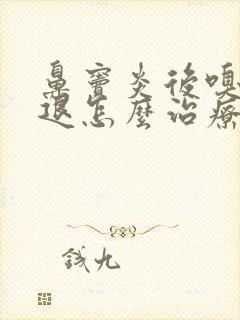 鼻竇炎後嗅
退怎麼治療
錢九